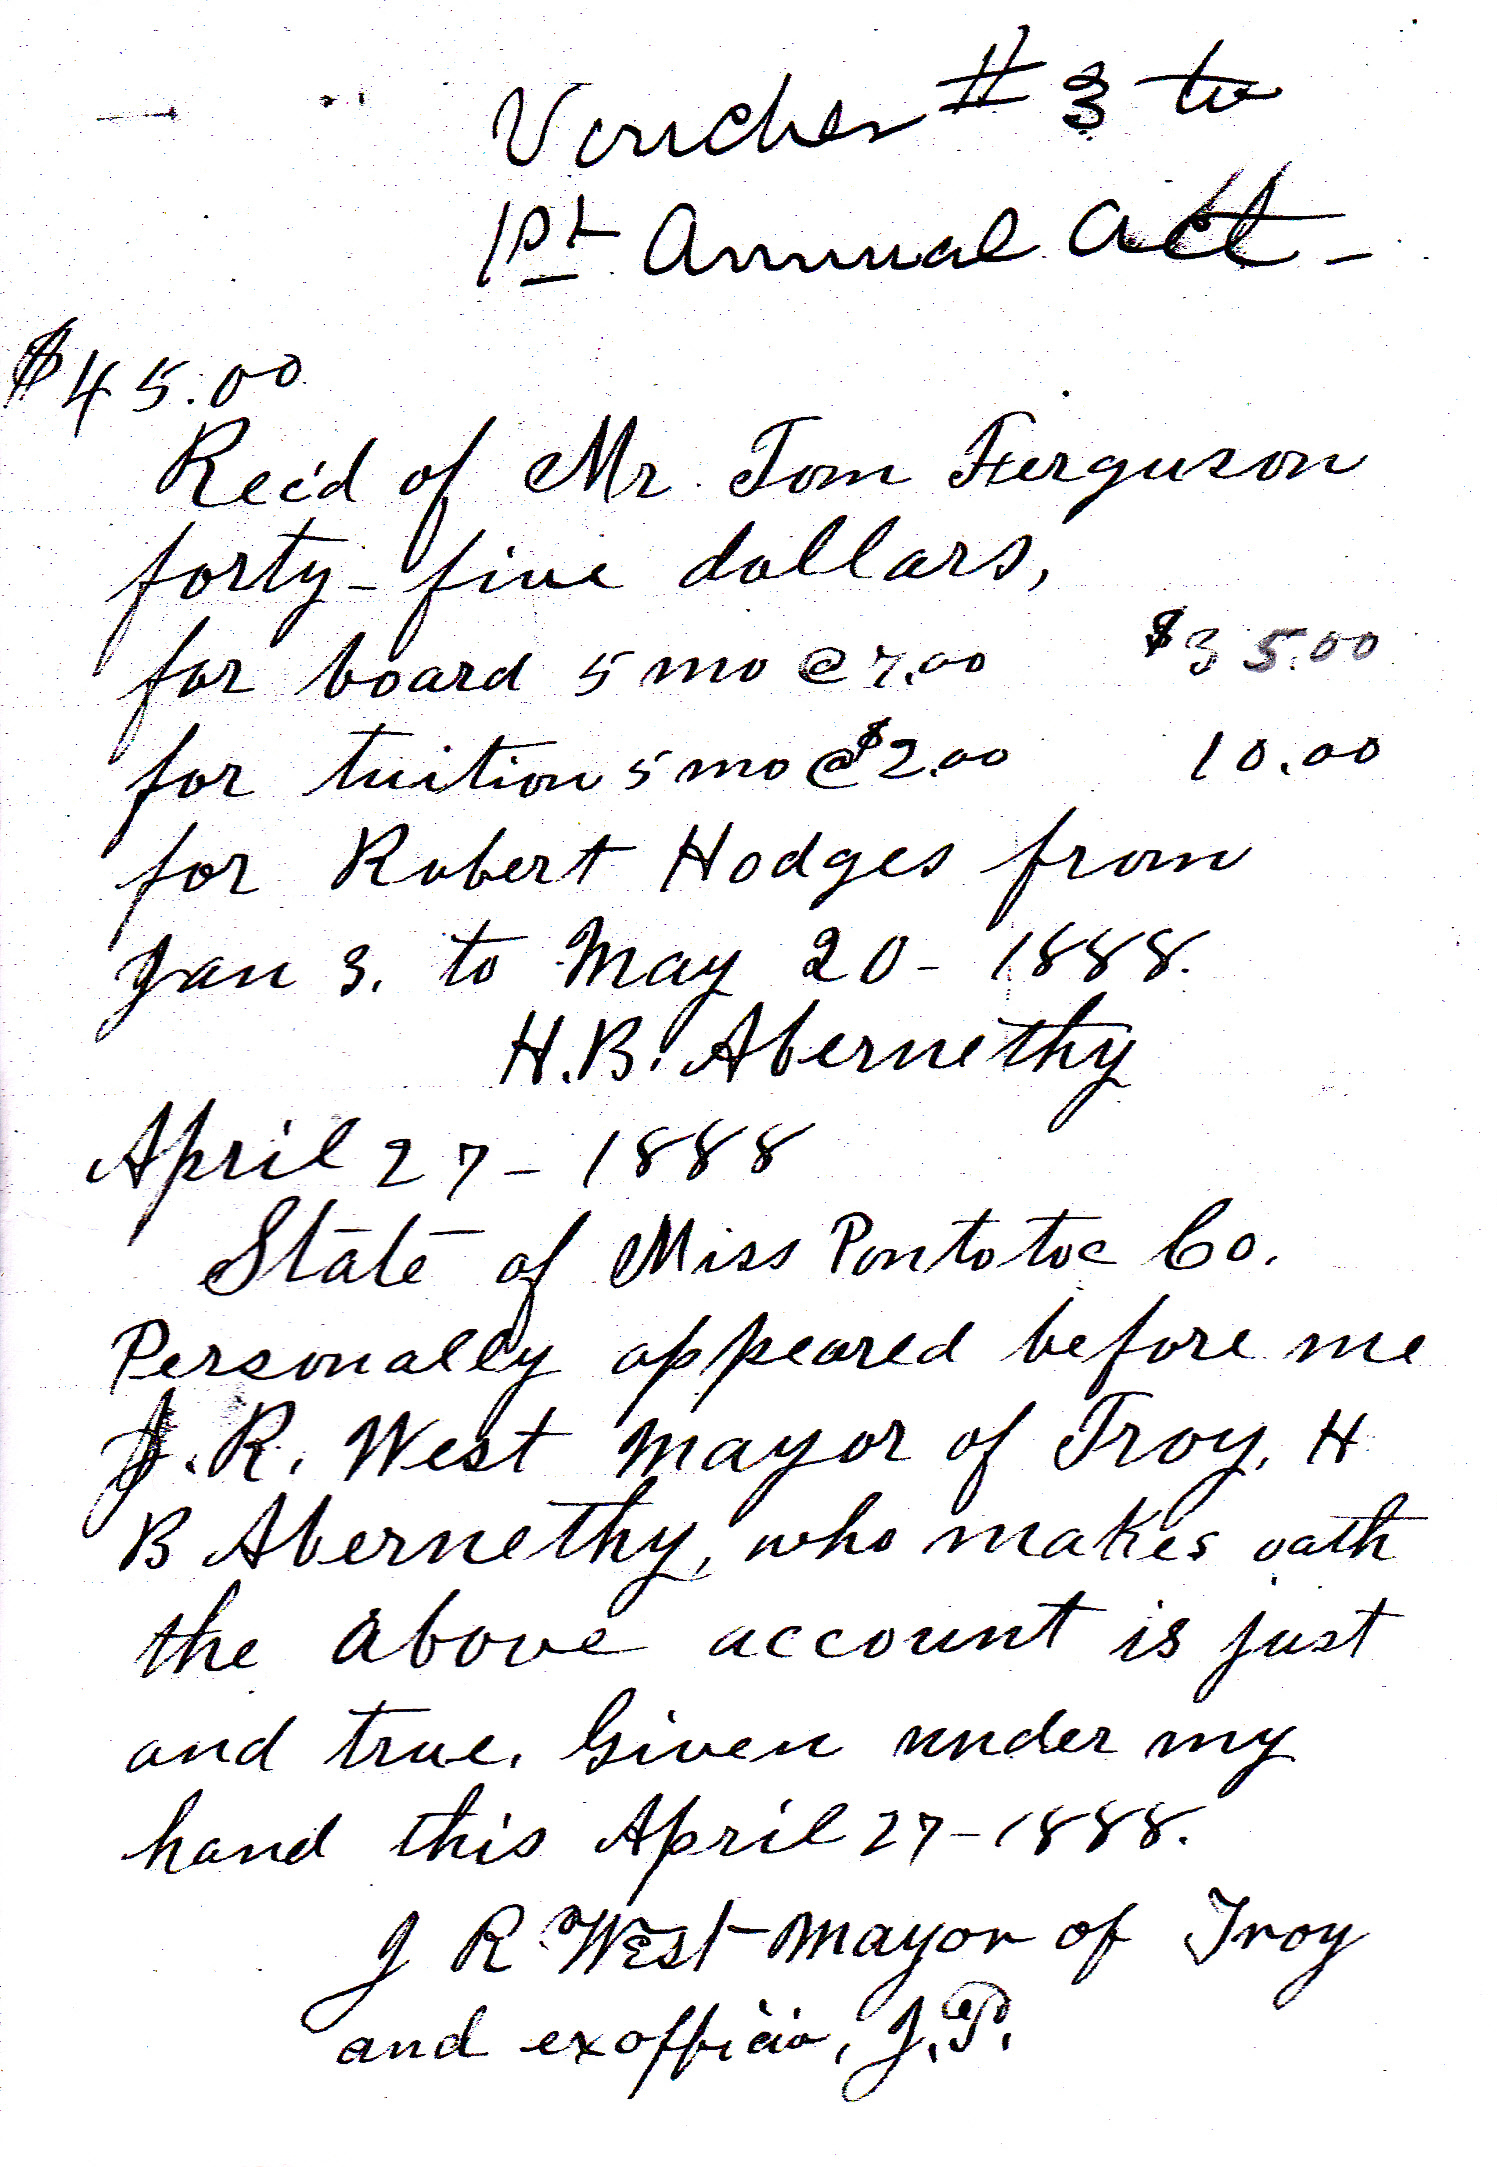 Voucher # 3 to
1st Annual Act -
$45.00
Rec'd of Mr. Tom Ferguson
forty-five dollars,
for board 5 mo @ 7.00 $35.00
for tuition 5 mo @ $2.00 10.00
for Robert Hodges from
Jan 3. to May 20 - 1888.
H.B. Abernethy
April 27 - 1888
State of Miss Pontotoc Co.
Personally appeared before me
J. R. West mayor of Troy, H
B Abernethy, who makes oath
the above account is just
and true. Given under my
hand this April 27-1888.
J R West Mayor of Troy
and exofficio, J.P.